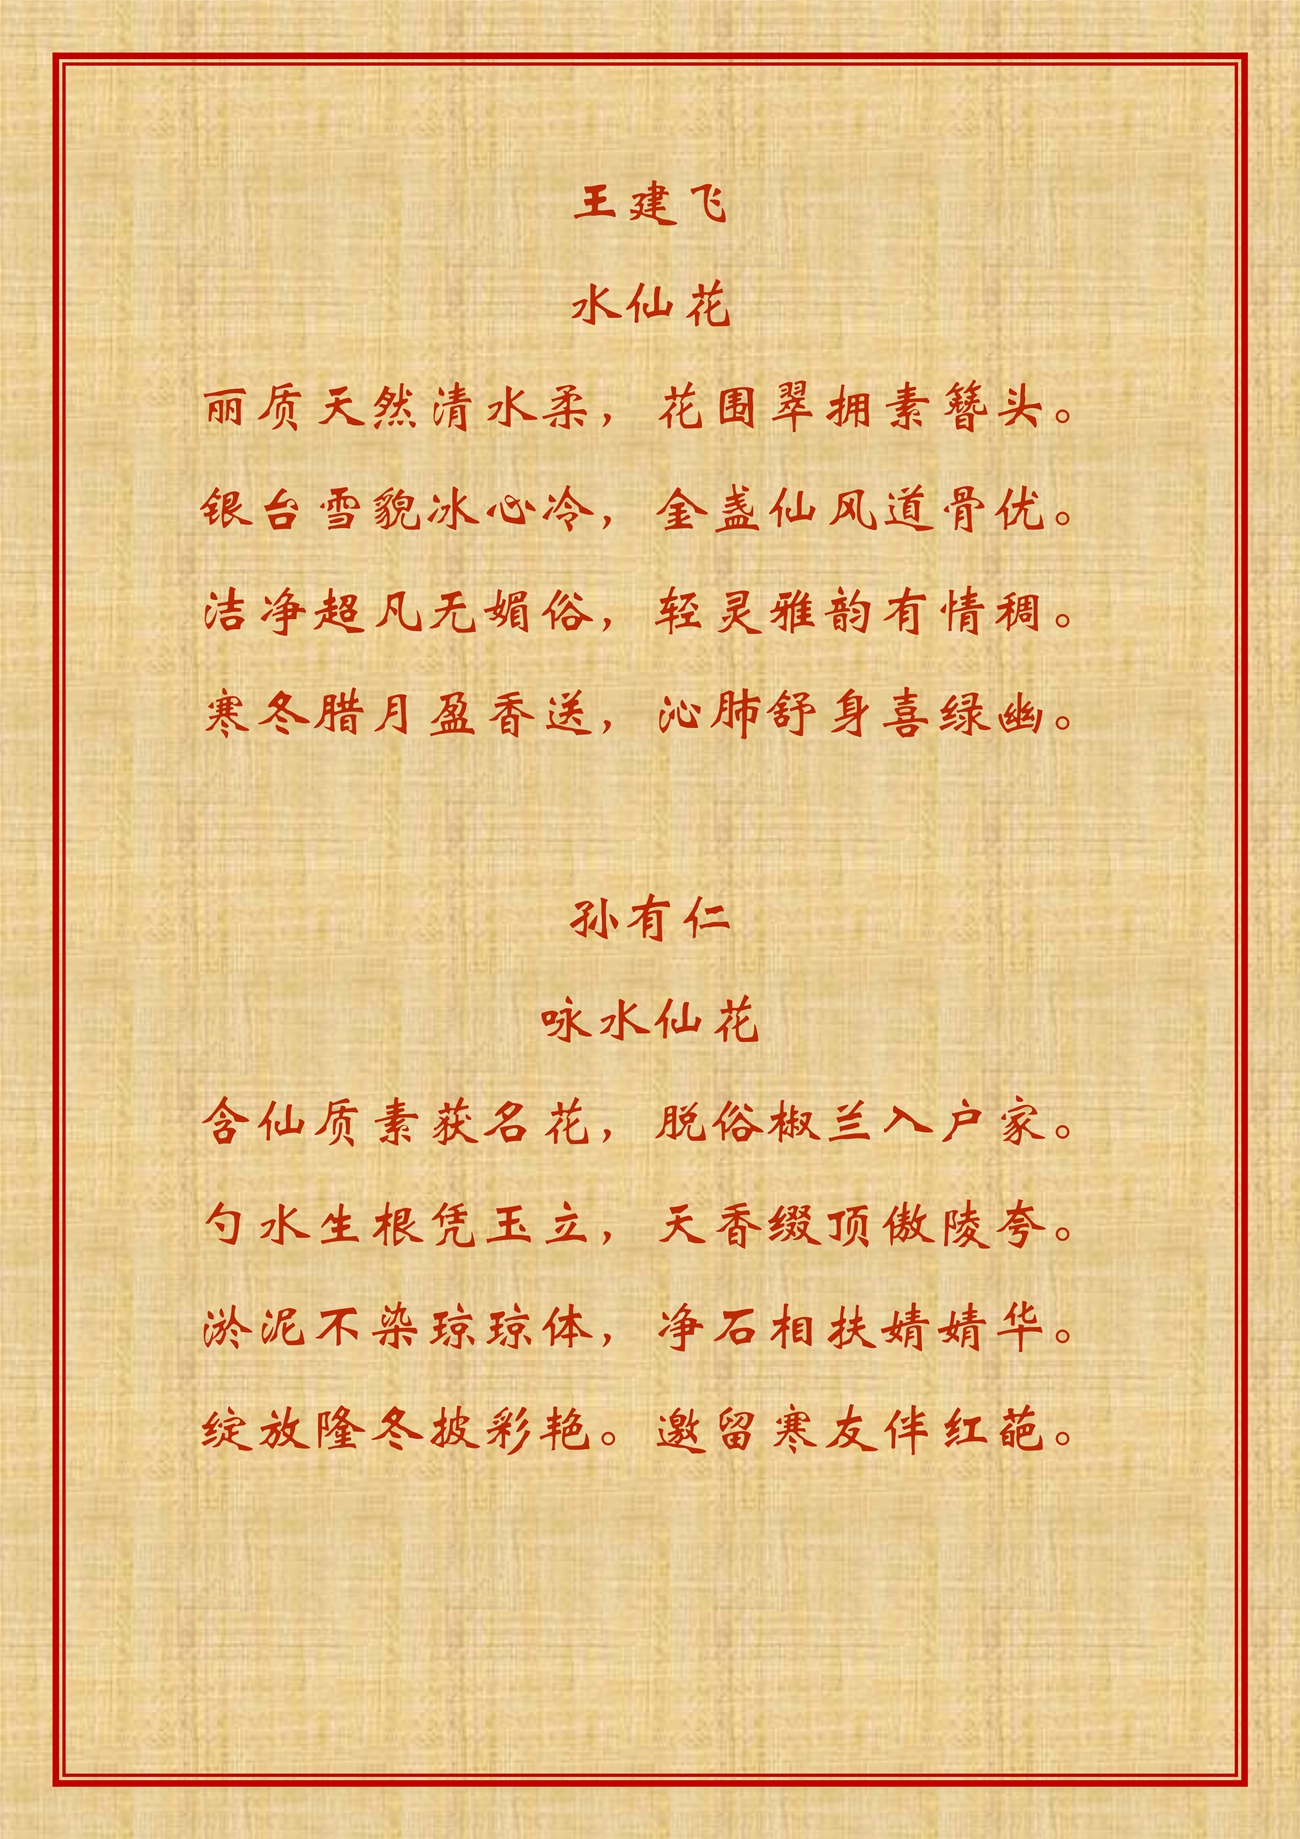 王建飞
水仙花
丽质天然清水柔，花围翠拥素簪头。
银台雪貌冰心冷，金盏仙风道骨优。
洁净超凡无媚俗，轻灵雅韵有情稠。
寒冬腊月盈香送，沁肺舒身喜绿幽。
孙有仁
咏水仙花
含仙质素获名花，脱俗椒兰入户家。
勺水生根凭玉立，天香缀顶傲陵夸。
淤泥不染琼琼体，净石相扶婧婧华。
绽放隆冬披彩艳。邀留寒友伴红葩。